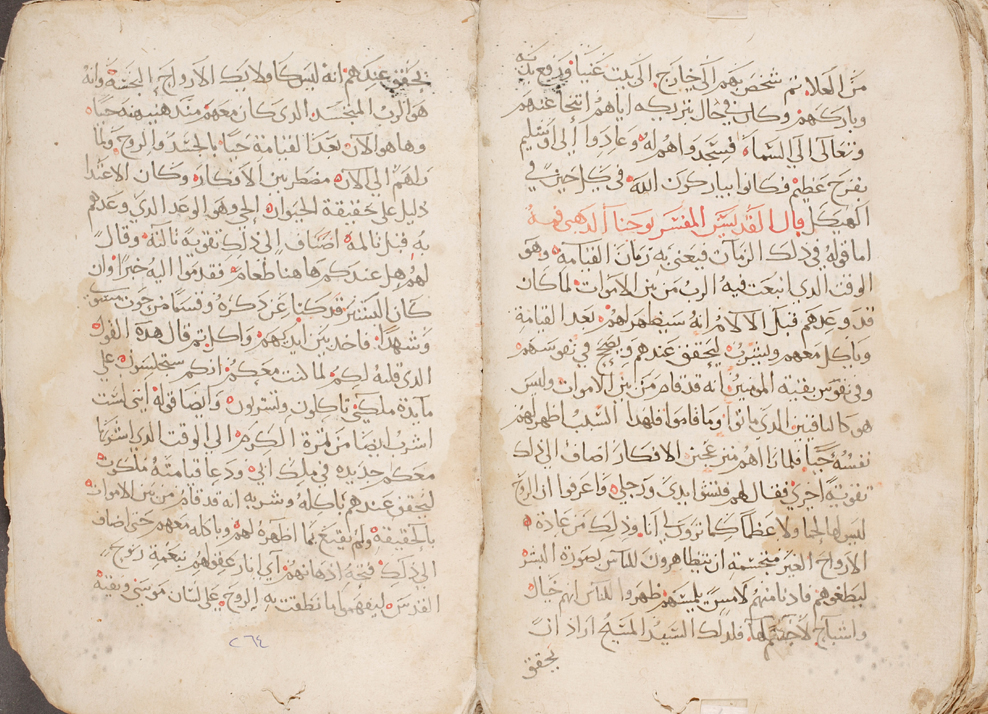 من العلا ثم شخص بهم الي خارج الي بيت عنيا ورفع يديه
وباركهم وكان في حال تبريكه اياهم انتحا عنهم
وتعالى الي السما فسجدوا هم له وعادوا الى اورشليم
بفرح عظيم فكانوا يباركون الله في كل حين في
الهيكل قال القديس المفسر يوحنا الدهبي فمه
اما قوله في ذلك الزمان فيعني به زمان القيامه وهو
الوقت الدي انبعت فيه الرب من بين الاموات لما كان
قد وعدهم قبل الالام انه سيظهر لهم بعد القيامة
وياكل معهم ويشرب ليحقق عندهم ويصح في نفوسهم
وفي نفوس بقية المومنين انه قد قام من بين الاموات وليس
هو كالباقين الدي ماتوا وما قاموا فلهدا السبب اظهر لهم
نفسه حيا فلما راهم منزعجين الافكار اضاف الي ذلك
تقوية اخري فقال لهم فتشوا يدي ورجلي واعرفوا ان الروح
ليس لها لحما ولا عظما كما ترون لي انا وذلك من عادة
الارواح الغير متجسمة ان يتظاهرون للناس بصورة البشر
ليطغوهم فاذا دنا منهم لامس يلمسهم ظهروا للناس انهم خيال
واشباح لا جسم لها فلدلك السيد المسيح اراد ان
يحقق
يحقق عندهم انه ليس كاولايك الارواح الخبيثة وانه
هو الرب المتجسد الدي كان معهم مند هنيهه حيا
وها هو الان بعد القيامة حيا بالجسد والروح ولما
راهم الى الان مضطربين الافكار وكان الاغتدا
دليل علي حقيقة الحيوان الحي وهو الوعد الدي وعدهم
به قبل تالمه اضاف الى ذلك تقوية تالتة وقال
لهم هل عندكم هاهنا طعام فقدموا اليه خبزا وان
كان البشير قد كنا عن ذكره وقسما من حوت مشوي
وشهدا فاخد بين ايديهم واكل تم قال هدة القول
الدي قلته لكم لما كنت معكم انكم ستجلسون علي
مايدة ملكي تاكلون وتشربون وايضا قوله انني لست
اشرب ايضا من ثمرة الكرم الي الوقت الدي اشربها
معكم جديده في ملك ابي ودعا قيامته ملكوت
ليحقق عندهم باكله وشربه انه قد قام من بين الاموات
بالحقيقة ولم يقنع بما اظهره لهم وباكله معهم حتي اضاف
الي ذلك فتحه اذهانهم اي انار عقولهم بنعمة روح
القدس ليفهموا ما نطقت به الروح علي لسان موسي وبقية
٢٦٤